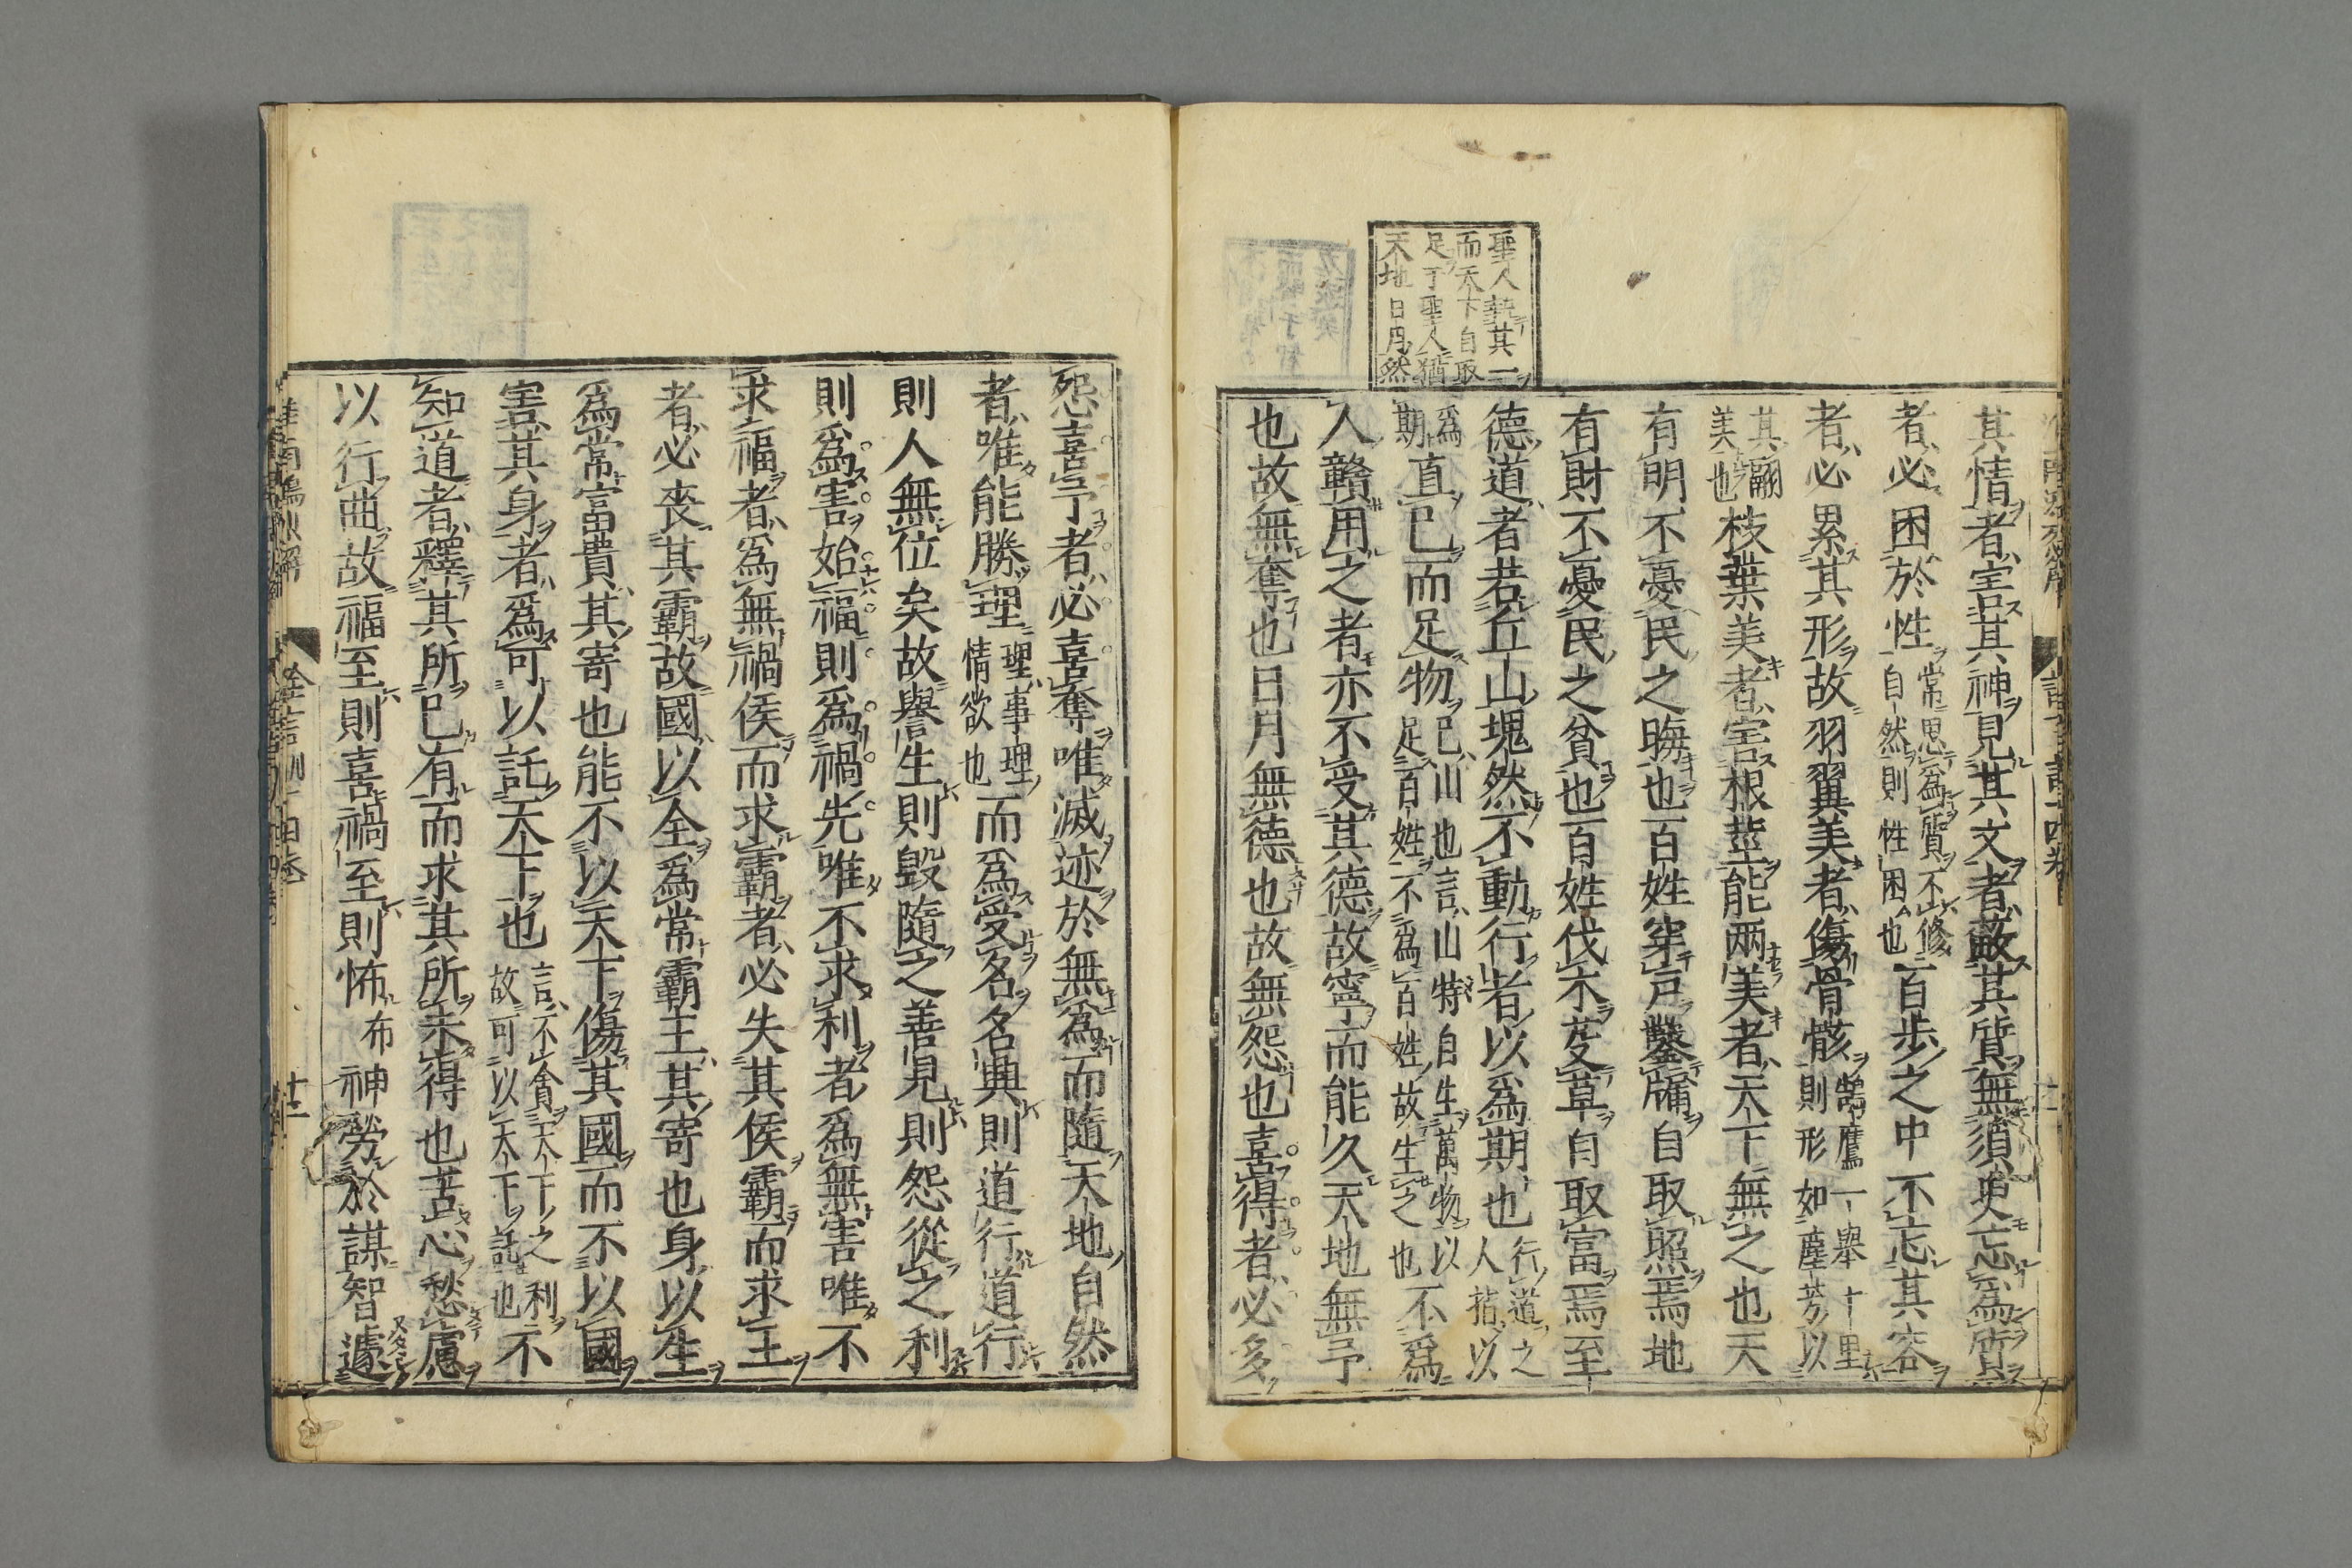 聖人執其一
而天下自取
足于聖人猶
天地日月然
其情者害其神見其文者蔽其質無須臾忘為質
者必困於性常思為質不修自然則性困也百步之中不忘其容
者必累其形故羽翼美者傷骨骸鵠鷹一舉十里則形如塵芳以
其翮美也枝葉美者害根莖能兩美者天下無之也天
有明不憂民之晦也百姓穿戶鑿牖自取照焉地
有財不憂民之貧也百姓伐木芟草自取富焉至
德道者若丘山塊然不動行者以爲期也行道之人指以
爲期直已而足物已山也言山特自生萬物以足百姓不為百姓故生之也不爲
人贛用之者亦不受其德故寧而能久天地無予
也故無奪也日月無德也故無怨也喜得者必多
怨喜予者必喜奪唯滅迹於無為而隨天地自然
者唯能勝理理事理情欲也而為受名名興則道行道行
則人無位矣故譽生則毀隨之善見則怨從之利
則爲害始福則爲禍先唯不求利者為無害唯不
求福者為無禍侯而求霸者必失其侯霸而求王
者必喪其霸故國以全為常霸王其寄也身以生
爲常富貴其寄也能不以天下傷其國而不以國
害其身者爲可以託天下也言不貪天下之利故可以天下託也不
知道者釋其所已有而求其所未得也苦心愁慮
以行曲故福至則喜禍至則怖布神勞於謀智遽
淮南鴻烈解
詮言訓十四卷
十二